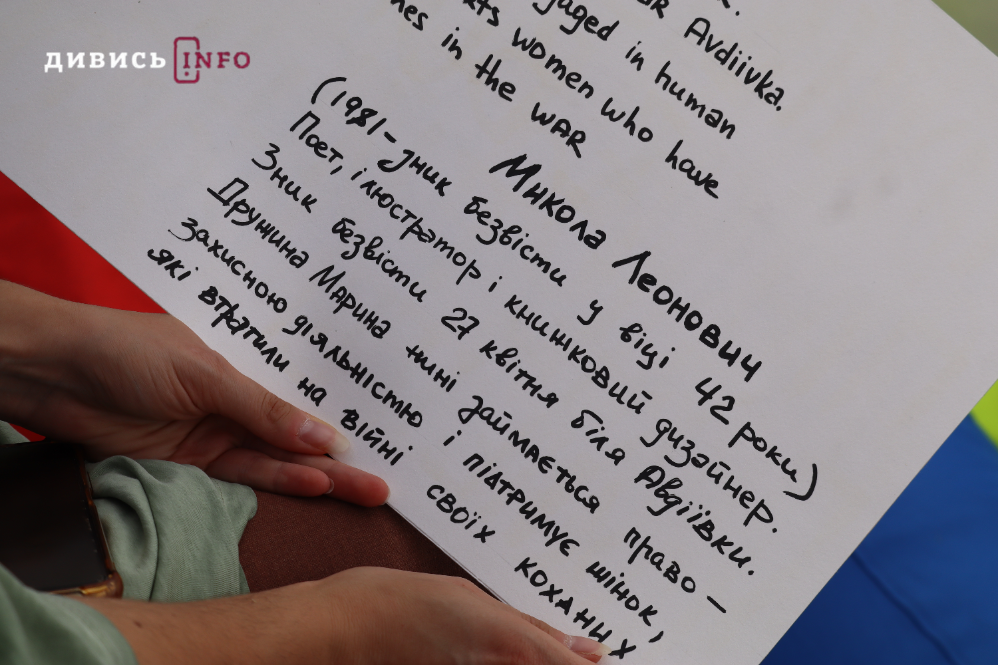 ДИВИСЬ INFO
Avdiivka.
in human
women who have
in the WAR
Микола Леонович
(1981 – зник безвісти у віці 42 роки)
Поет, ілюстратор і книжковий дизайнер.
Зник безвісти 27 квітня біля Авдіївки.
Дружина Марина нині займається право –
захисною діяльністю і підтримує жінок,
які втратили на війні своїх коханих